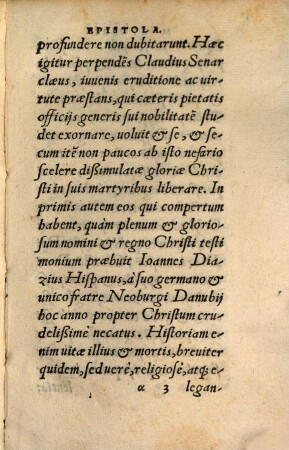 EPISTOLA.
profundere non dubitarunt. Hæc
igitur perpendẽs Claudius Senar
clæus, iuuenis eruditione ac uir-
tute præstans, qui cæteris pietatis
officijs generis sui nobilitatẽ stu-
det exornare, uoluit & se, & se-
cum itẽ non paucos ab isto nefario
scelere dißimulatæ gloriæ Chri-
sti in suis martyribus liberare. In
primis autem eos qui compertum
habent, quàm plenum & glorio-
sum nomini & regno Christi testi
monium præbuit Ioannes Dia-
zius Hispanus, à suo germano &
unico fratre Neoburgi Danubij
hoc anno propter Christum cru-
delißimè necatus. Historiam e-
nim uitæ illius & mortis, breuiter
quidem, sed uerè, religiosè, atq; e-
α 3 legan-